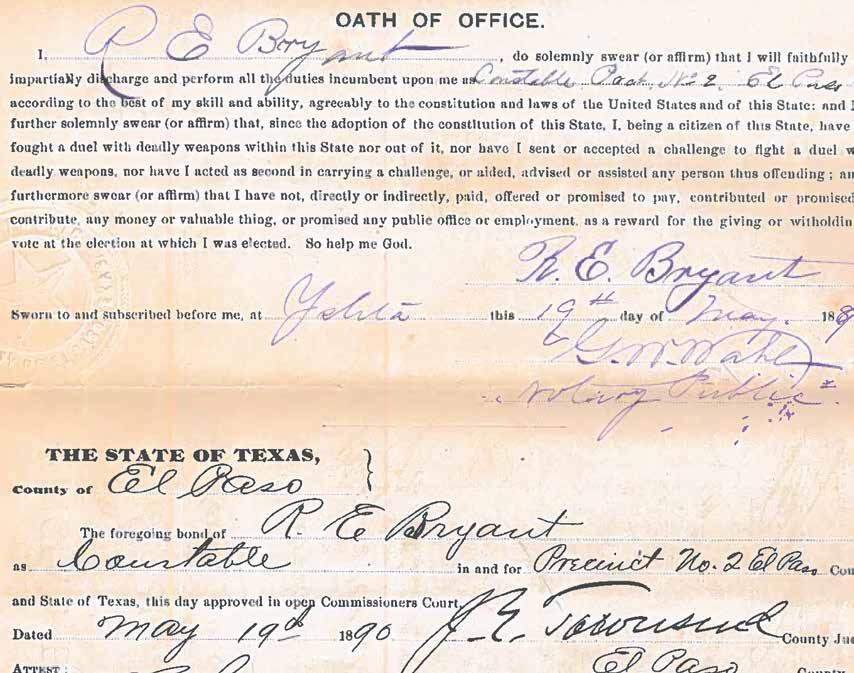 OATH OF OFFICE.
I, R E Bryant, do solemnly swear (or affirm) that I will faithfully
impartially discharge and perform all the duties incumbent upon me as Constable Prect. No 2. El Paso
according to the best of my skill and ability, agreeably to the constitution and laws of the United States and of this State: and I
further solemnly swear (or affirm) that, since the adoption of the constitution of this State, I, being a citizen of this State, have
fought a duel with deadly weapons within this State nor out of it, nor have I sent or accepted a challenge to fight a duel w
deadly weapons, nor have I acted as second in carrying a challenge, or aided, advised or assisted any person thus offending; an
furthermore swear (or affirm) that I have not, directly or indirectly, paid, offered or promised to pay, contributed or promised
contribute, any money or valuable thing, or promised any public office or employment, as a reward for the giving or witholdin
vote at the election at which I was elected. So help me God.
R. E. Bryant
Sworn to and subscribed before me, at Ysleta this 19th day of May. 18
G. W. Wahl
Notary Public
THE STATE OF TEXAS,
County of El Paso
The foregoing bond of R. E Bryant
as Constable in and for Precinct No. 2 El Paso Cou
and State of Texas, this day approved in open Commissioners Court,
Dated May 19d 1890 Townsend County Jud
El Paso County
ATTEST: